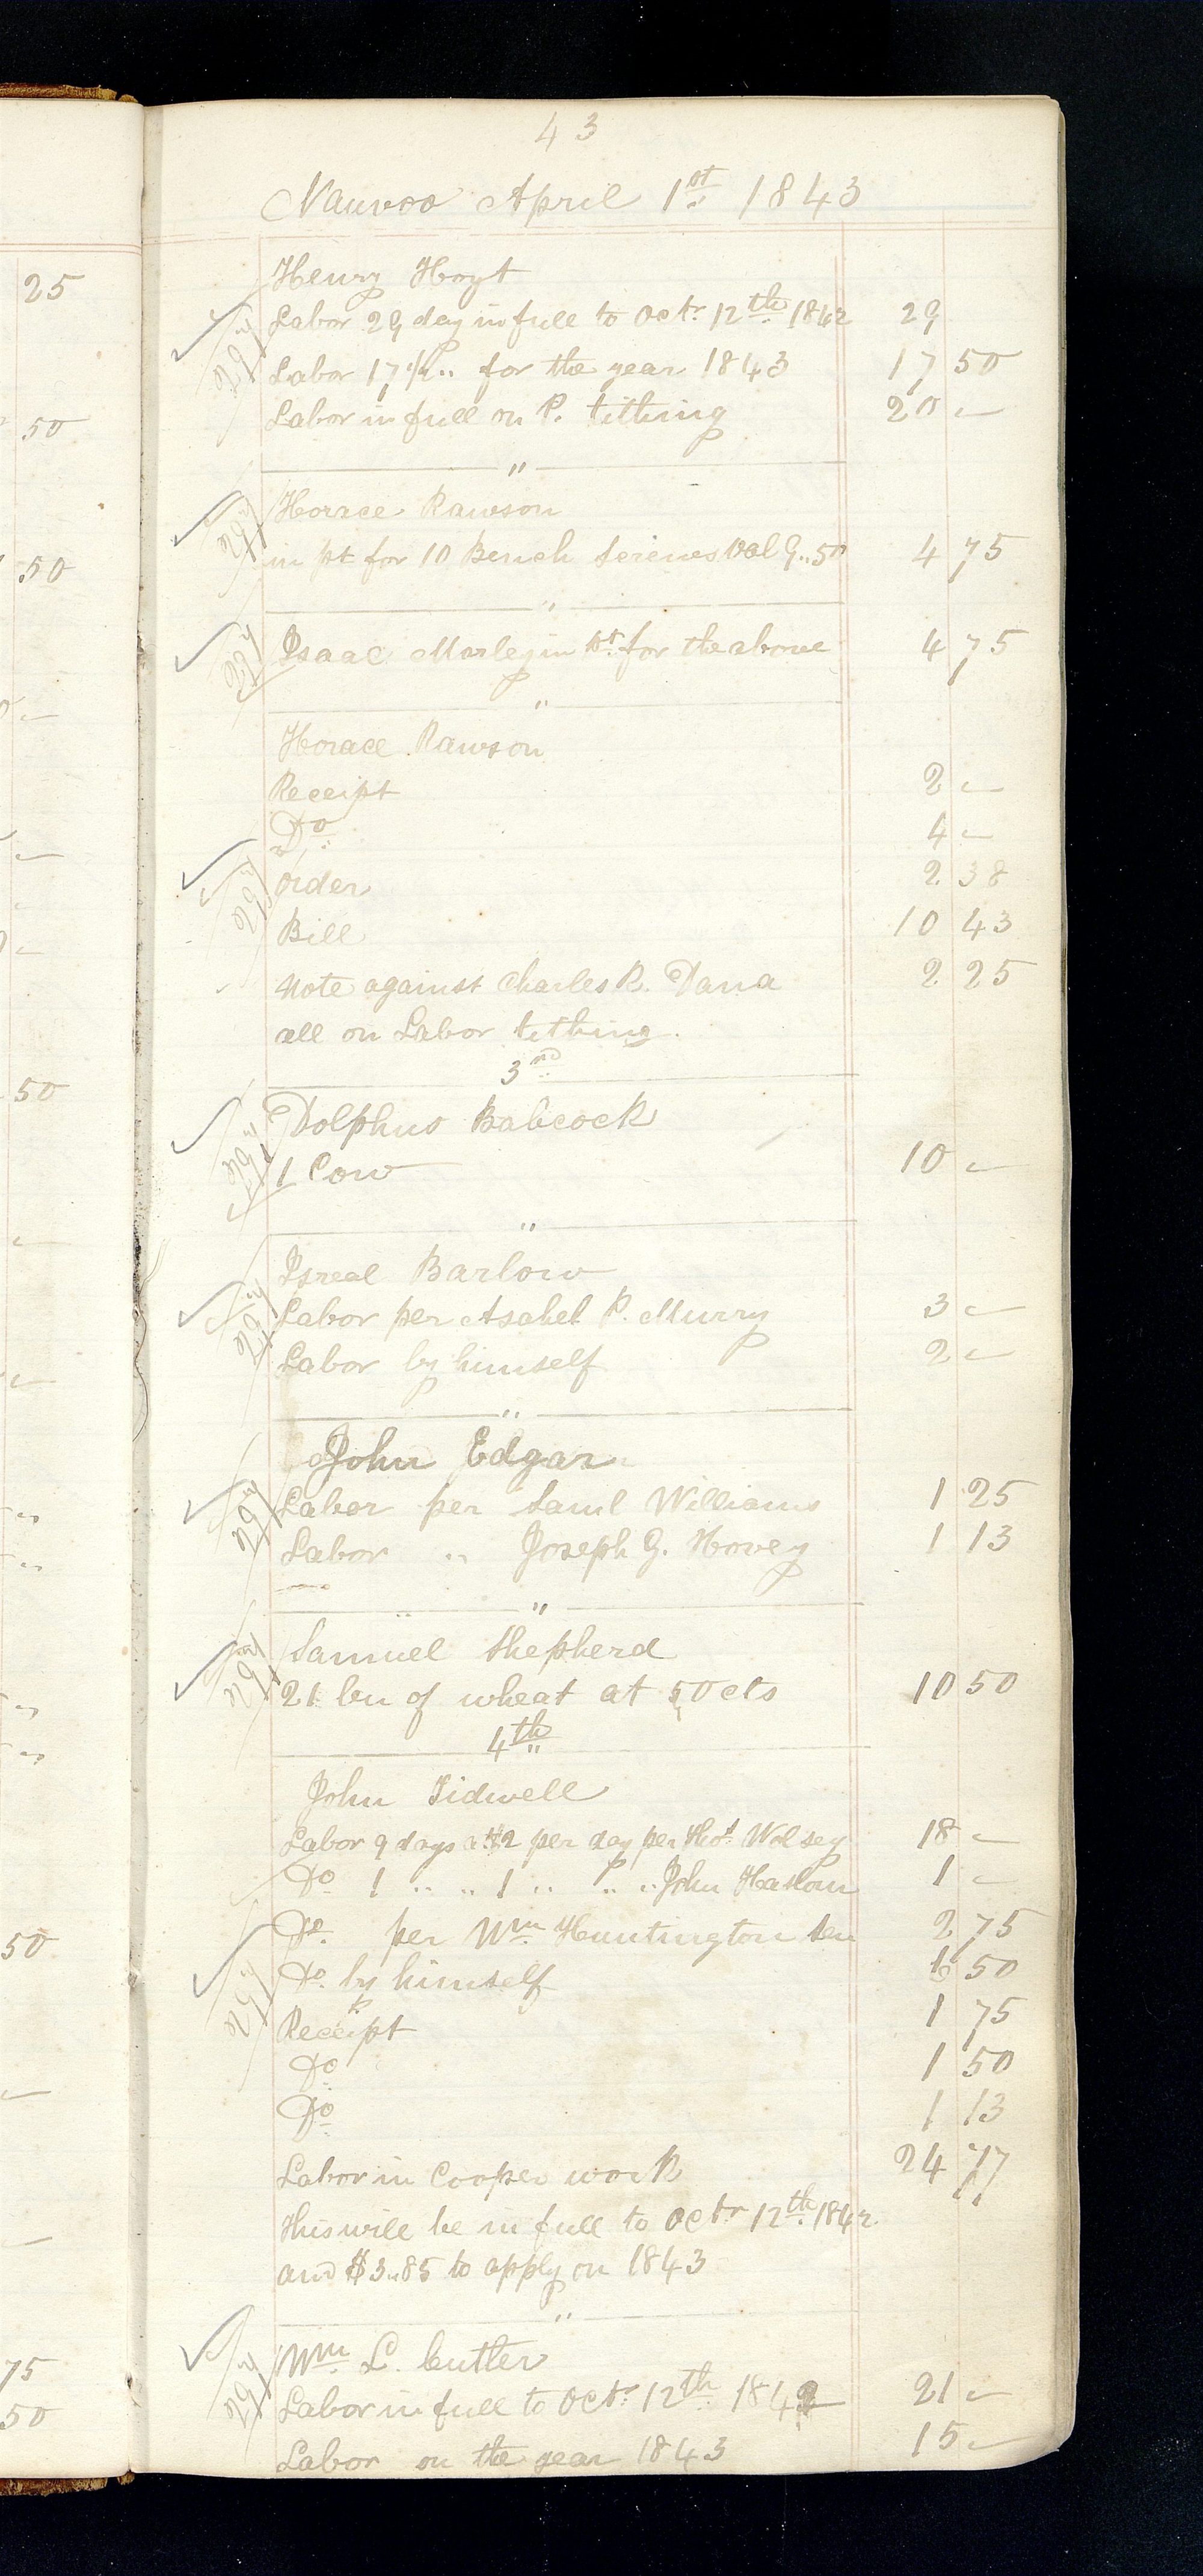 43
Nauvoo April 1st 1843
25
Henry Hoyt
Labor 29 day in full to Octr 12th 1842 29
Labor 17 1/2 " for the year 1843 17 50
Labor in full on P. tithing 20 –
50
"
Horace Rawson
in pt for 10 Bench Screws Val 9..50 4 75
50
"
Isaac Morley in pt for the above 4 75
"
Horace Rawson
Receipt 2 –
Do 4 –
order 2 38
Bill 10 43
Note against Charles R. Dana 2 25
all on Labor tithing.
3rd
50
Dolphus Babcock
1 Cow 10 –
"
Isreal Barlow
Labor per Asahel P. Murry 3 –
Labor by himself 2 –
"
John Edgar
Labor per Saml Williams 1 25
Labor " Joseph G. Hovey 1 13
"
Samuel Shepherd
21 bu of wheat at 50 cts 10 50
4th
John Tidwell
Labor 9 days at $2 per day per Thos Wolsey 18 –
Do 1 " " 1 " " " John Haslom 1 –
Do. per Wm Huntington Sen 2 75
50
Do. by himself 6 50
Receipt 1 75
Do 1 50
Do 1 13
Labor in Cooper work 24 77
This will be in full to Octr 12th 1842.
and $3.85 to apply on 1843
"
75
Wm L. Cutler
50
Labor in full to Octr 12th 1842 21 –
Labor on the year 1843 15 –